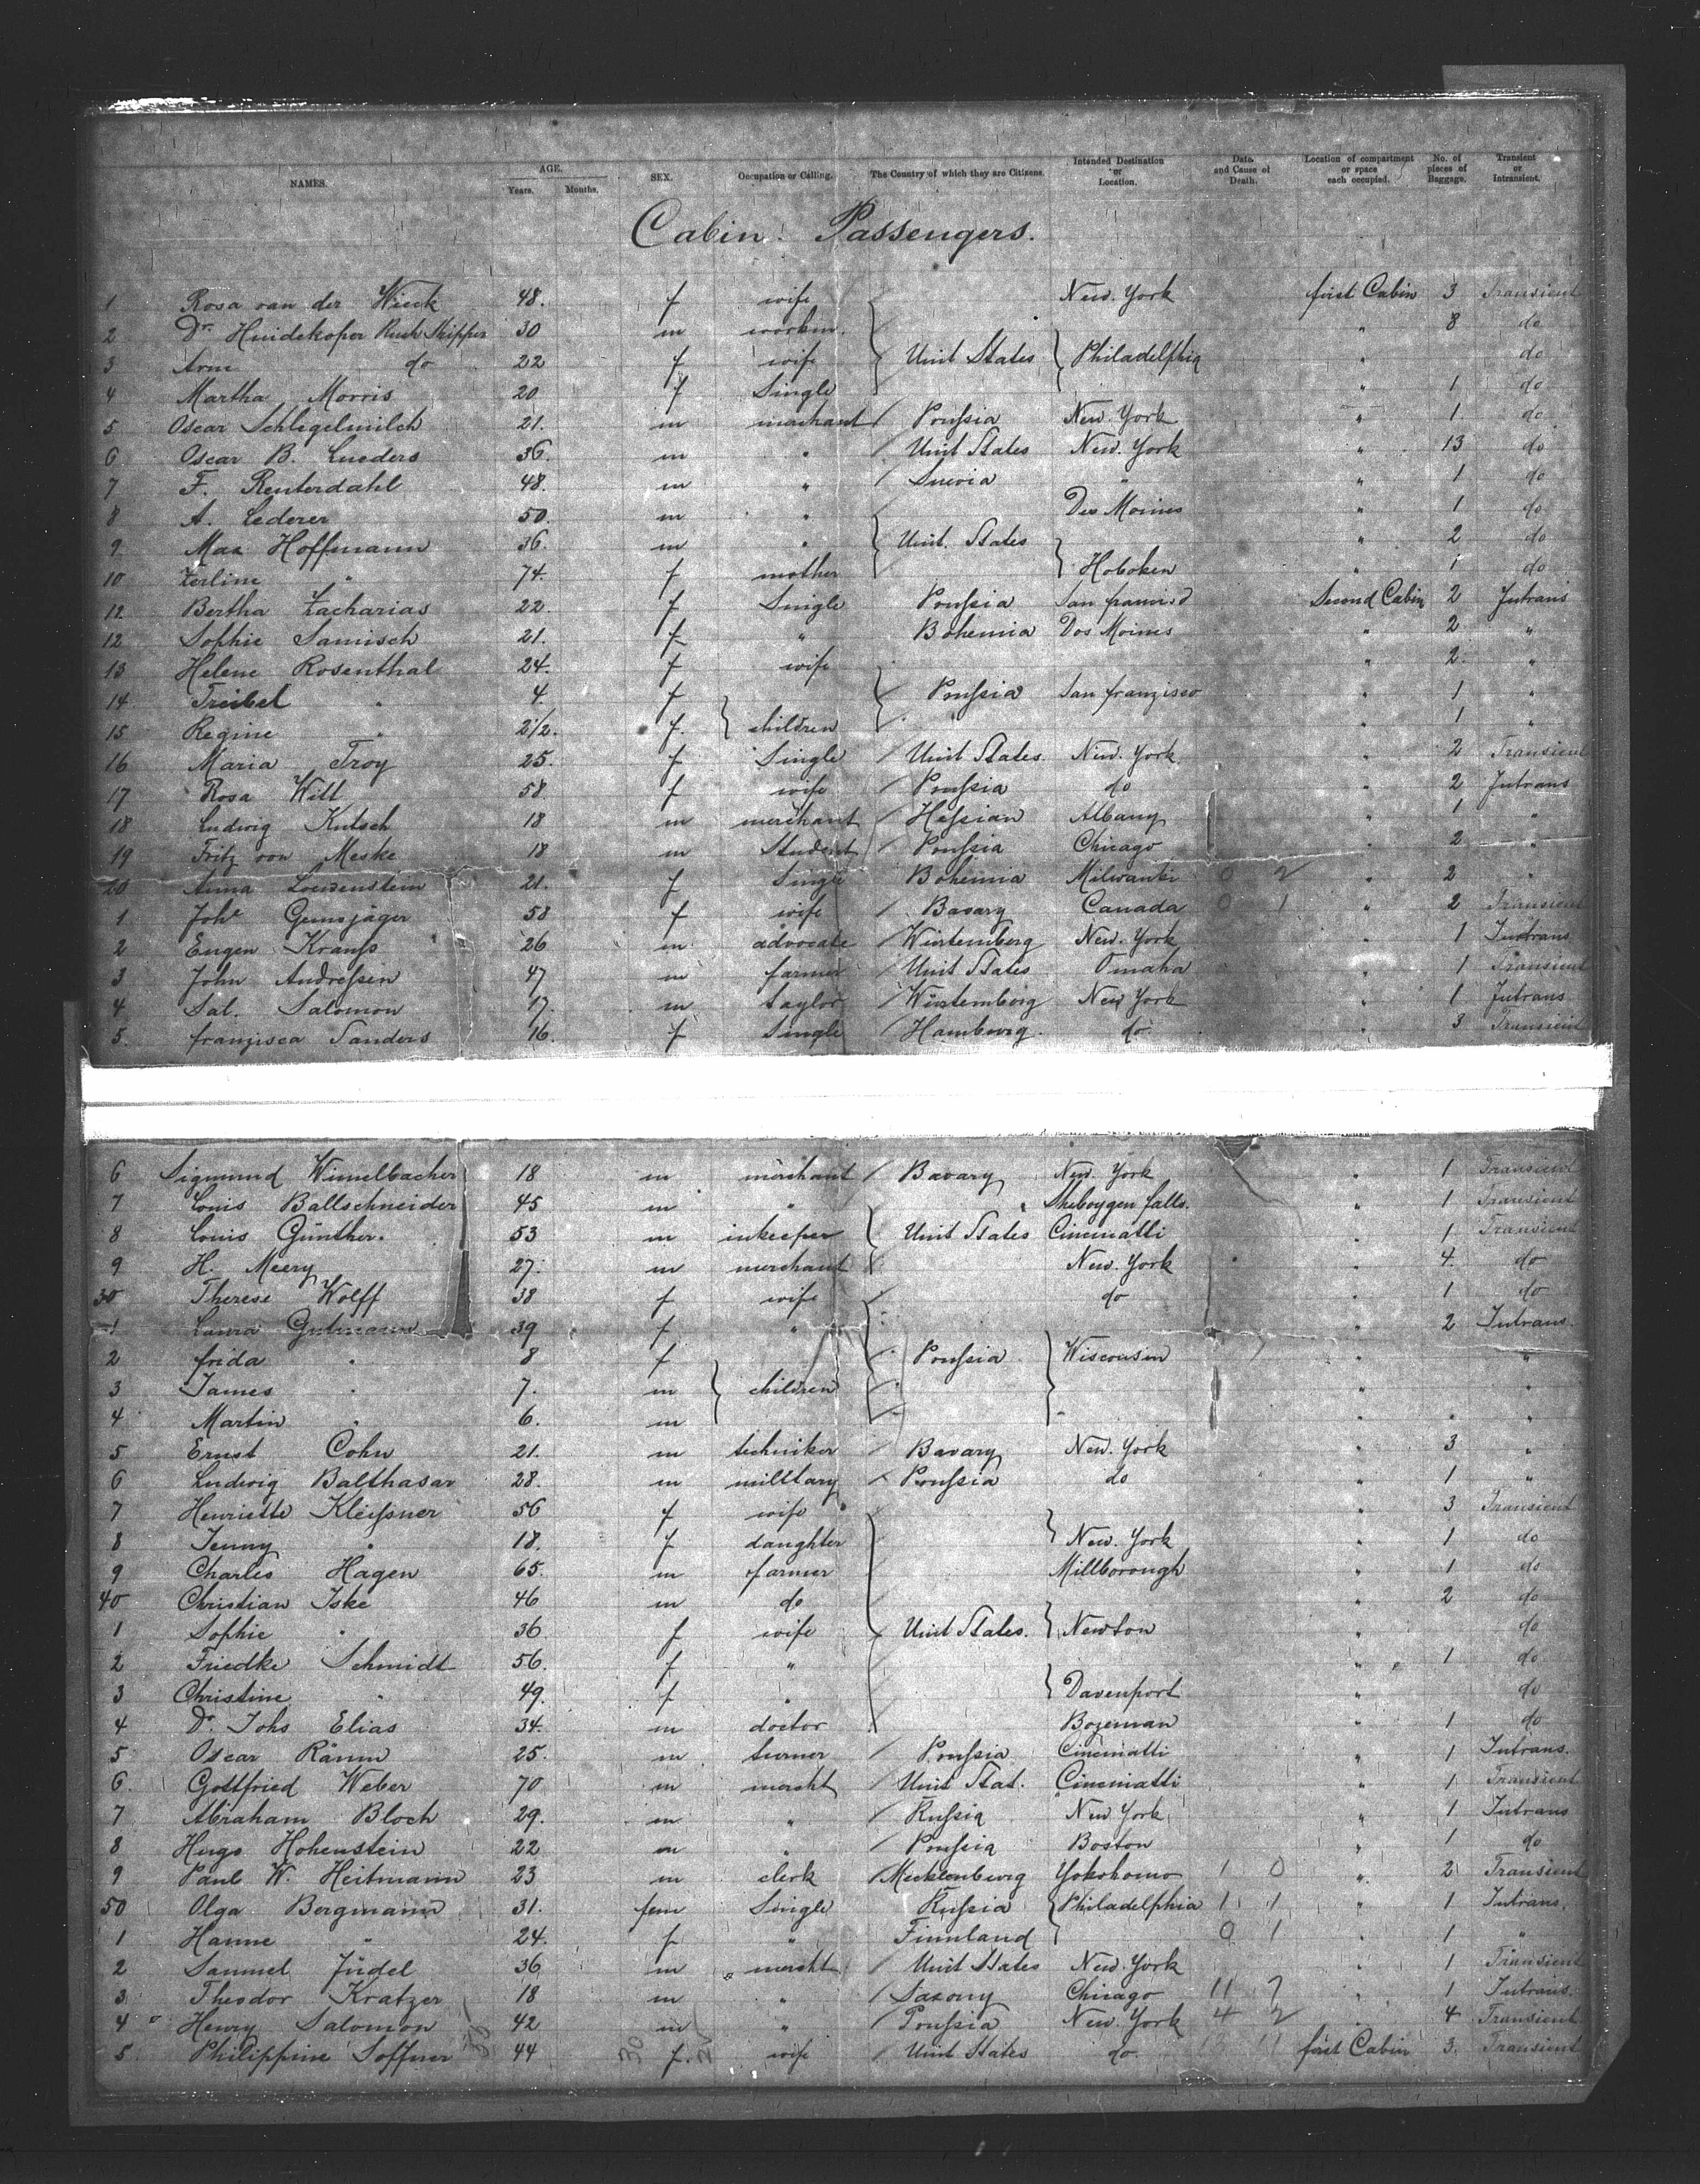 NAMES. AGE. Years. Months. SEX. Occupation or Calling. The Country of which they are Citizens. Intended Destination or Location. Date and Cause of Death. Location of compartment or space each occupied. No. of pieces of Baggage. Transient or Intransient.
Cabin Passengers.
1 Rosa van der Wieck 48. f wife New York first Cabin 3 Transient
2 Dr. Huidekoper Rush Shippen 30 m workm. " 8 do
3 Arm do 22 f wife Unit States Philadelphia " do
4 Martha Morris 20 f Single " 1 do
5 Oscar Schlegelmilch 21. m merchant Preußia New York " 1 do
6 Oscar B. Lueders 36. m " Unit States New York " 13 do
7 F. Reuterdahl 48. m " Suevia " " 1 do
8 A. Lederer 50. m " Des Moines " 1 do
9 Max Hoffmann 36. m " Unit. States " 2 do
10 Zerline " 74. f mother Hoboken " 1 do
12. Bertha Zacharias 22. f Single Preußia San francisco Second Cabin 2 Intrans
12 Sophie Samisch 21. f " Bohemia Des Moines " 2 "
13 Helene Rosenthal 24. f wife " 2 "
14 Treibel " 4. f Preußia San franzisco " 1 "
15 Regine " 2 1/2. f. children " 1 "
16 Maria Troy 25. f Single Unit States. New. York " 2 Transient
17 Rosa Witt 58 f wife Preußia do " 2 Intrans
18 Ludwig Kutsch 18 m merchant Heßian Albany " 1 "
19 Fritz von Meske 18 m Student Preußia Chicago " 2 "
20 Anna Loewenstein 21. f Single Bohemia Milwauki 0 2 " 2 "
1 Johe Gemsjäger 58 f wife Bavary Canada 0 1 " 2 Transient
2 Eugen Krauß 26 m advocate Würtemberg New. York " 1 Intrans
3 John Andreßen 47 m farmer Unit States Omaha " 1 Transient
4 Sal. Salomon 17. m taylor Würtemberg New York " 1 Intrans
5. franzisca Sanders 16. f Single Hambourg. do " 3 Transient
6 Sigmund Wimelbacher 18 m merchant Bavary New. York " 1 Transient
7 Louis Ballschneider 45 m " " Sheboygen falls. " 1 Transient
8 Louis Günther. 53 m inkeeper Unit States Cincinatti " 1 Transient
9 H. Meery 27. m merchant New. York " 4. do
30 Therese Wolff 38 f wife do " 1 do
1 Laura Gutmann 39 f " " 2 Intrans.
2 frida " 8 f Preußia Wisconsin " "
3 James " 7. m children " "
4 Martin " 6. m " " "
5 Ernst Cohn 21. m techniker Bavary New. York " 3 "
6 Ludwig Balthasar 28. m milltary Preußia do " 1 "
7 Henriette Kleißner 56 f wife " 3 Transient
8 Jenny " 18. f daughter New. York " 1 do
9 Charles Hagen 65. m farmer Millborough " 1 do
40 Christian Iske 46 m do " 2 do
1 Sophie " 36 f wife Unit States. Newton " do
2 Friedke Schmidt 56. f " " 1 do
3 Christine " 49. f " Davenport " do
4 Dr. Johs Elias 34. m doctor Bozeman " 1 do
5 Oscar Ramm 25. m turner Preußia Cincinatti " 1 Intrans.
6. Gottfried Weber 70 m mercht Unit Stat. Cincinatti " 1 Transient
7 Abraham Bloch 29. m " Rußia New York " 1 Intrans
8 Hugo Hohenstein 22 m " Preußia Boston " 1 do
9 Paul W. Heitmann 23 m clerk Mecklenburg Yokohomo 1 0 " 2 Transient
50 Olga Bergmann 31. fem Single Rußia Philadelphia 1 1 " 1 Intrans.
1 Hanne " 24. f " Finnland 0 1 " 1 "
2 Samuel Jüdel 36 m " mercht Unit States New. York " 1 Transient
3 Theodor Kratzer 18 m " Saxony Chicago 11 7 " 1 Intrans.
4 Henry Salomon 42 m " Preußia New. York 4 2 " 4 Transient
5. Philippine Soffner 44 f. wife Unit States do first Cabin 3. Transient